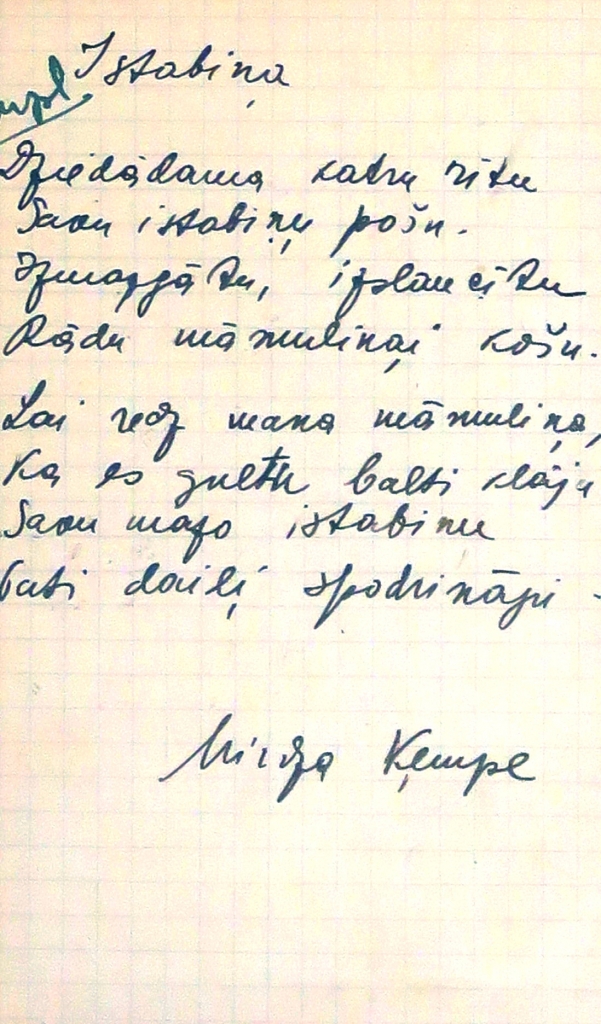 Istabiņa
Dziedādama katru rītu
Savu istabiņu pošu.
Izmazgātu, izslaucītu
Rādu māmuliņai košu.
Lai redz mana māmuliņa,
Ka es gultu balti klāju
Savu mazo istabiņu
Pati daiļi spodrināju
Mirdza Ķempe